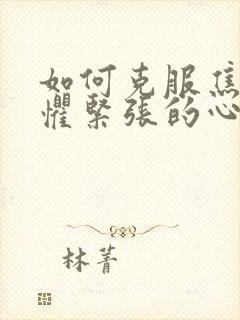 如何克服焦
懼緊張的心
林菁